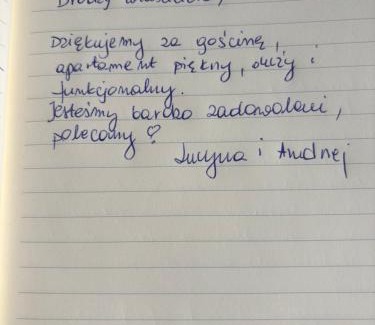 Drodzy właściciele,
Dziękujemy za gościnę,
apartament piękny, duży i
funkcjonalny.
Jesteśmy bardzo zadowoleni,
polecamy ♡
Lucyna i Andrzej